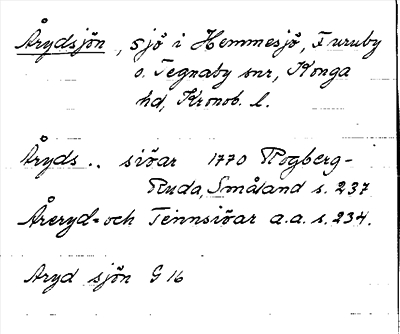 Årydsjön, sjö i Hemmesjö, Furuby
o. Tegnaby snr, Konga
hd, Kronob. l.
Åryds.. siöar 1770 Rogberg-
Ruda, Småland s. 237
Åreryd- och Tennsiöar a.a. s. 234.
Aryd sjön G 16